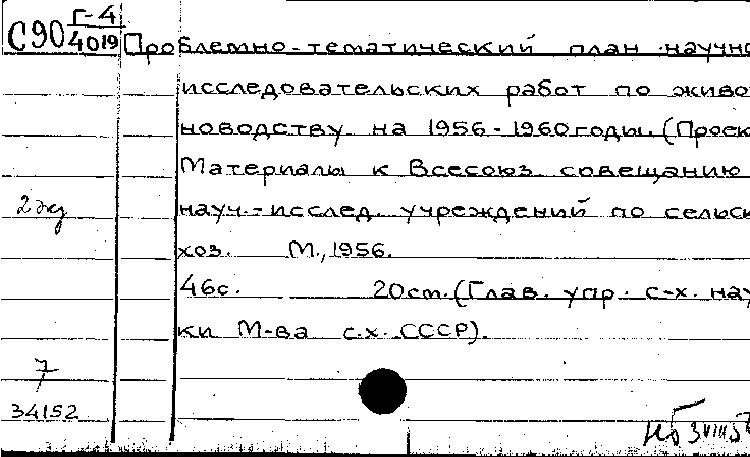 Г-4
С90 4019 Проблемно-тематический план научно
исследовательских работ по живо
новодству на 1956-1960 годы. (Проек
Материалы к Всесоюз. совещанию
2 экз
науч.-исслед. учреждений по сельск
хоз. М., 1956.
46с. 20см. (Глав. упр. с-х. нау
ки М-ва с.х. СССР).
7
34152